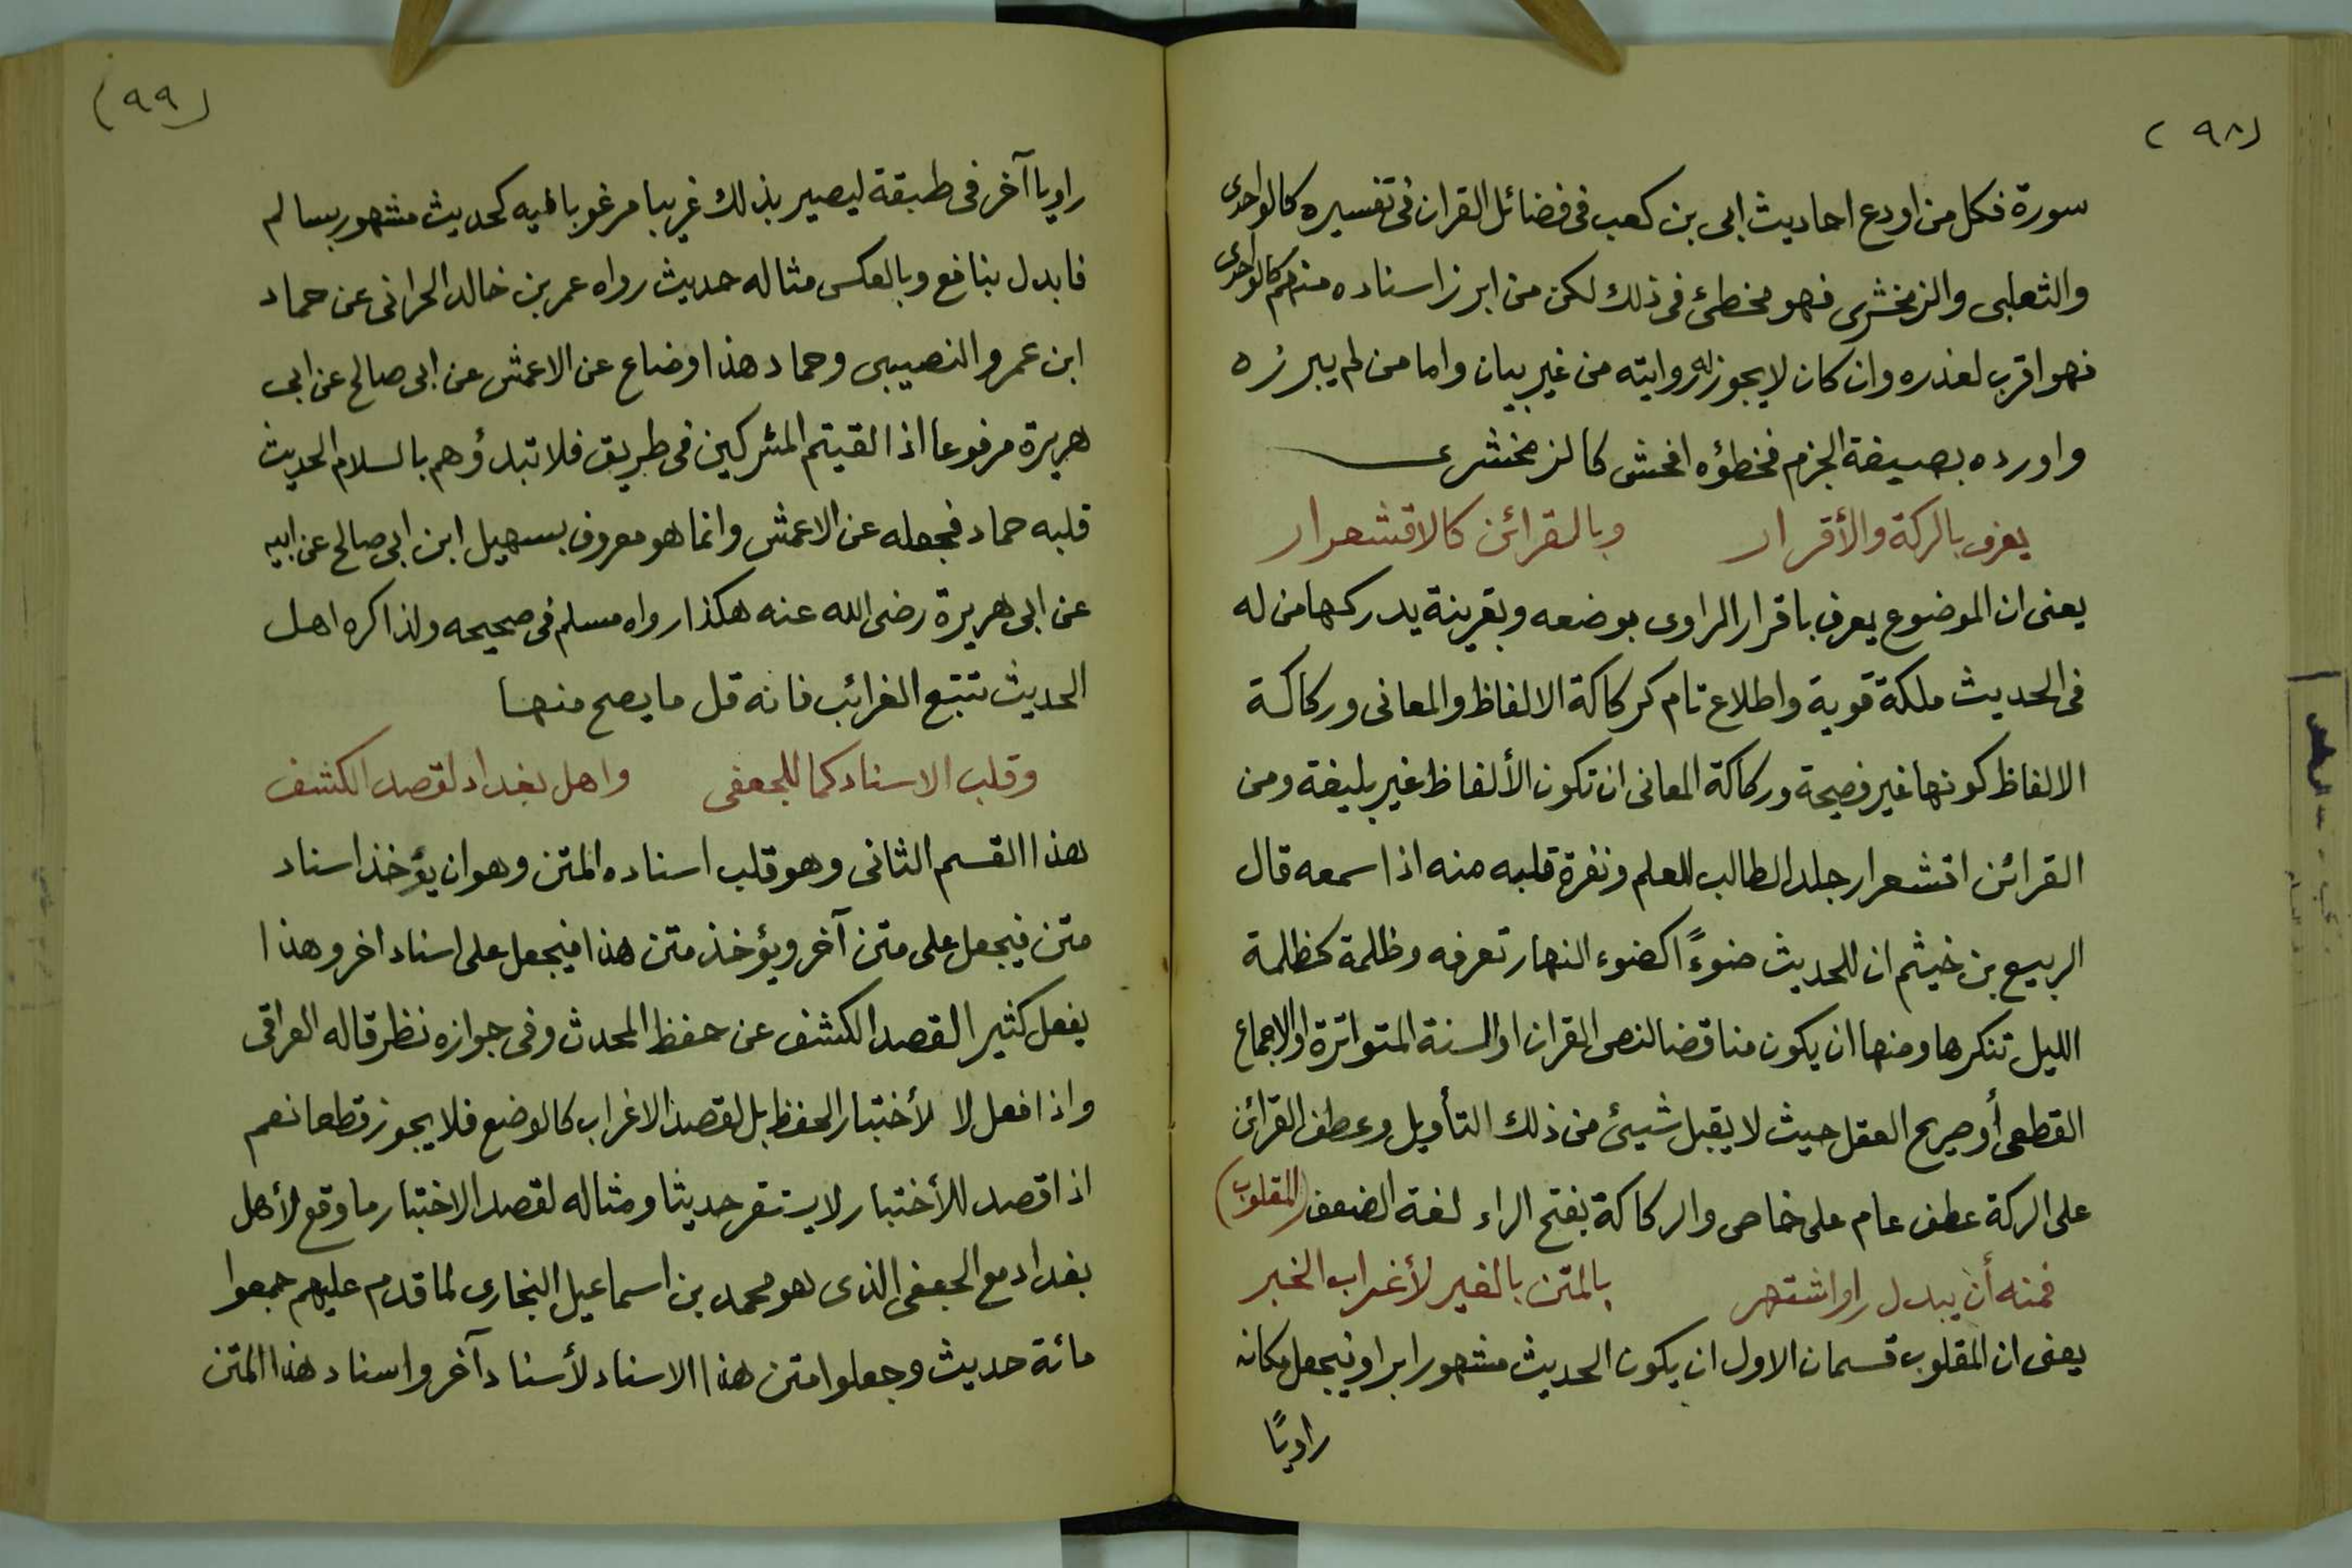 (٩٨)
سورة فكل من اودع احاديث ابى بن كعب فى فضائل القران فى تفسيره كالواحدى
والثعلبى والزمخشرى فهو مخطئ فى ذلك لكن من ابرز اسناده منهم كالواحدى
فهو اقرب لعذره وان كان لا يجوز له روايته من غير بيان واما من لم يبرزه
واورده بصيغة الجزم فخطؤه افحش كالزمخشرى
يعرف بالركة والأقرار وبالقرائن كالاقشعرار
يعنى ان الموضوع يعرف باقرار الراوى بوضعه وبقرينة يدركها من له
فى الحديث ملكة قوية واطلاع تام كركاكة الالفاظ والمعانى وركاكة
الالفاظ كونها غير فصيحة وركاكة المعانى ان تكون الألفاظ غير بليغة ومن
القرائن اقشعرار جلد الطالب للعلم ونفرة قلبه منه اذا سمعه قال
الربيع بن خيثم ان للحديث ضوءًا كضوء النهار تعرفه وظلمة كظلمة
الليل تنكرها ومنها ان يكون مناقضا لنص القران او السنة المتواترة او الاجماع
القطعى أو صريح العقل حيث لا يقبل شيئ من ذلك التأويل وعطف القرائن
على الركة عطف عام على خاص والركاكة بفتح الراء لغة الضعف (المقلوب)
فمنه أن يبدل راو اشتهر بالمتن بالغير لأغراب الخبر
يعنى ان المقلوب قسمان الاول ان يكون الحديث مشهورا براو فيجعل مكانه
راويًا
(٩٩)
راويا آخر فى طبقة ليصير بذلك غريبا مرغوبا فيه كحديث مشهور بسالم
فابدل بنافع وبالعكس مثاله حديث رواه عمر بن خالد الحرانى عن حماد
ابن عمرو النصيبى وحماد هذا وضاع عن الاعمش عن ابى صالح عن ابى
هريرة مرفوعا اذا لقيتم المشركين فى طريق فلا تبدؤهم بالسلام الحديث
قلبه حماد فجعله عن الاعمش وانما هو معروف بسهيل ابن ابى صالح عن ابيه
عن ابى هريرة رضى الله عنه هكذا رواه مسلم فى صحيحه ولذا كره اهل
الحديث تتبع الغرائب فانه قل ما يصح منها
وقلب الاسناد كما للجعفى واهل بغداد لقصد الكشف
هذا القسم الثانى وهو قلب اسناده المتن وهو ان يؤخذ اسناد
متن فيجعل على متن آخر ويؤخذ متن هذا فيجعل على اسناد اخر وهذا
يفعل كثيرا لقصد الكشف عن حفظ المحدث وفى جوازه نظر قاله العراقى
واذا فعل لا لأختبار الحفظ بل لقصد الاغراب كالوضع فلا يجوز قطعا نعم
اذا قصد للأختبار لا يستقر حديثا ومثاله لقصد الاختبار ما وقع لأهل
بغداد مع الجعفى الذى هو محمد بن اسماعيل البخارى لما قدم عليهم جمعوا
مائة حديث وجعلوا متن هذا الاسناد لأسناد آخر واسناد هذا المتن